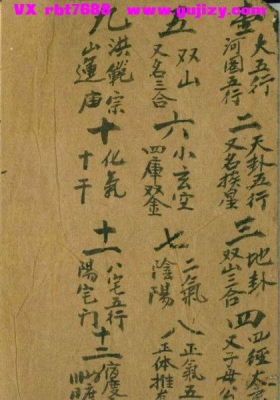 VX rbt7688 www.gujizy.com
壹
大五行
河圖五行
二
天卦五行
又名挨星
三
地卦
双山三合
四
四經大
又子母公
五
双山
又名三合
六
小玄空
四庫双金
七
二氣
陰陽
八
正氣五
正体推
九
洪範宗
山運庚
十
化氣
十干
十一
八宅五行
陽宅門
十二
宿度